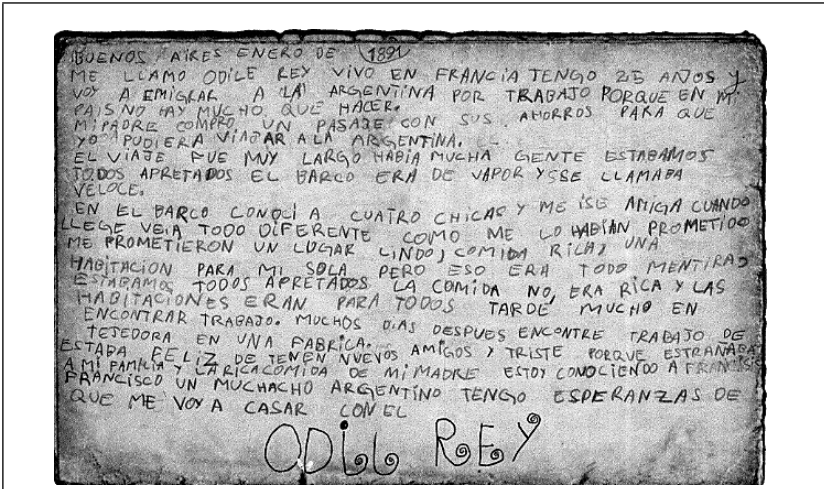 BUENOS AIRES ENERO DE 1891
ME LLAMO ODILE REY VIVO EN FRANCIA TENGO 25 AÑOS Y
VOY A EMIGRAR A LA ARGENTINA POR TRABAJO PORQUE EN MI
PAIS NO HAY MUCHO QUE HACER.
MI PADRE COMPRO UN PASAJE CON SUS AHORROS PARA QUE
YO PUDIERA VIAJAR A LA ARGENTINA.
EL VIAJE FUE MUY LARGO HABIA MUCHA GENTE ESTABAMOS
TODOS APRETADOS EL BARCO ERA DE VAPOR Y SSE LLAMABA
VELOCE.
EN EL BARCO CONOCI A CUATRO CHICAS Y ME ISE AMIGA CUANDO
LLEGE VEIA TODO DIFERENTE COMO ME LO HABIAN PROMETIDO
ME PROMETIERON UN LUGAR LINDO, COMIDA RICA, UNA
HABITACION PARA MI SOLA PERO ESO ERA TODO MENTIRAS
ESTABAMOS TODOS APRETADOS LA COMIDA NO, ERA RICA Y LAS
HABITACIONES ERAN PARA TODOS TARDE MUCHO EN
ENCONTRAR TRABAJO. MUCHOS DIAS DESPUES ENCONTRE TRABAJO DE
TEJEDORA EN UNA FABRICA.
ESTABA FELIZ DE TENEN NUENOS AMIGOS Y TRISTE PORQUE ESTRAÑABA
A MI FAMILIA Y LA RICA COMIDA DE MI MADRE ESTOY CONOCIENDO A
FRANCISCO UN MUCHACHO ARGENTINO TENGO ESPERANZAS DE
QUE ME VOY A CASAR CON EL
ODILL REY